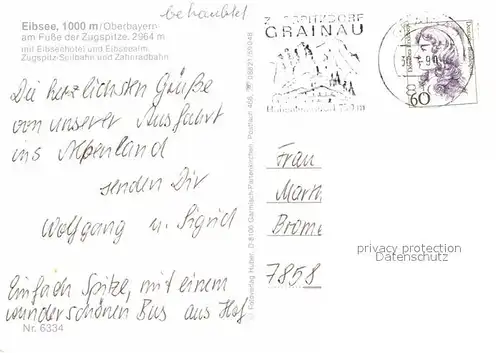 behandelt
Eibsee, 1000 m/Oberbayern
am Fuße der Zugspitze, 2964 m
mit Eibseehotel und Eibseealm,
Zugspitz-Seilbahn und Zahnradbahn
ZUGSPITZDORF
GRAINAU
60
Die herzlichsten Grüße
von unserer Ausfahrt
ins Alpenland
senden Dir
Wolfgang u. Sigrid
Einfach Spitze, mit einem
wunderschönen Bus aus Hof
Nr. 6334
Huber, D 8100 Garmisch-Partenkirchen, Postfach
Frau
Marth
Brome
7858
privacy protection
Datenschutz